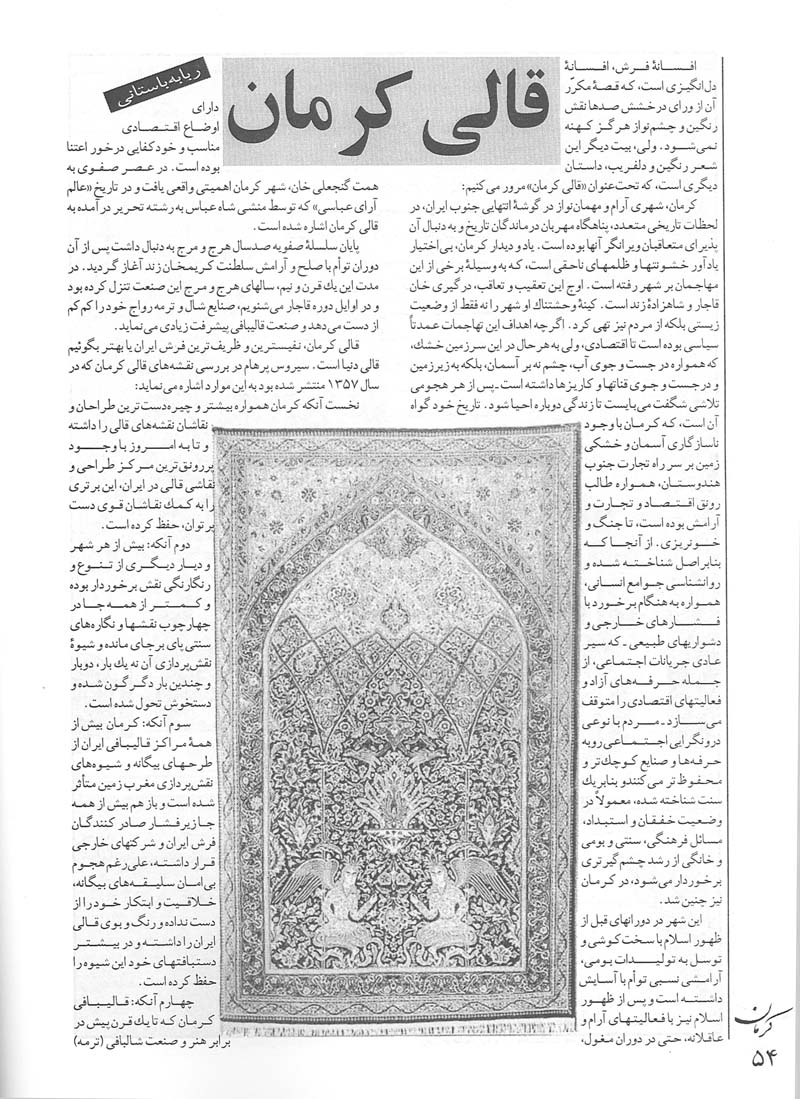 قالی کرمان
ربابه باستانی
افسانهٔ فرش، افسانهٔ
دل‌انگیزی است، که قصهٔ مکرّر
آن از ورای درخشش صدها نقش
رنگین و چشم‌نواز هرگز کهنه
نمی‌شود. ولی، بیت دیگر این
شعر رنگین و دلفریب، داستان
دیگری است، که تحت‌عنوان «قالی کرمان» مرور می‌کنیم:
کرمان، شهری آرام و مهمان‌نواز در گوشهٔ انتهایی جنوب ایران، در
لحظات تاریخی متعدد، پناهگاه مهربان درماندگان تاریخ و به دنبال آن
پذیرای متعاقبان ویرانگر آنها بوده است. یاد و دیدار کرمان، بی‌اختیار
یادآور خشونتها و ظلمهای ناحقی است، که به وسیلهٔ برخی از این
مهاجمان بر شهر رفته است. اوج این تعقیب و تعاقب، درگیری خان
قاجار و شاهزادهٔ زند است. کینهٔ وحشتناك او شهر را نه فقط از وضعیت
زیستی بلکه از مردم نیز تهی کرد. اگرچه اهداف این تهاجمات عمدتاً
سیاسی بوده است تا اقتصادی، ولی به هر حال در این سرزمین خشك،
که همواره در جست و جوی آب، چشم نه بر آسمان، بلکه به زیرزمین
و در جست و جوی قناتها و کاریزها داشته است ـ پس از هر هجومی
تلاشی شگفت می‌بایست تا زندگی دوباره احیا شود. تاریخ خود گواه
آن است، که کرمان با وجود
ناسازگاری آسمان و خشکی
زمین بر سر راه تجارت جنوب
هندوستان، همواره طالب
رونق اقتصاد و تجارت و
آرامش بوده است، تا جنگ و
خونریزی. از آنجا که
بنابراصل شناخته شده و
روانشناسی جوامع انسانی،
همواره به هنگام برخورد با
فشارهای خارجی و
دشواریهای طبیعی ـ که سیر
عادی جریانات اجتماعی، از
جمله حرفه‌های آزاد و
فعالیتهای اقتصادی را متوقف
می‌سازد ـ مردم با نوعی
درونگرایی اجتماعی روبه
حرفه‌ها و صنایع کوچك‌تر و
محفوظ‌تر می‌کنند و بنابریك
سنت شناخته شده، معمولاً در
وضعیت خفقان و استبداد،
مسائل فرهنگی، سنتی و بومی
و خانگی از رشد چشم‌گیرتری
برخوردار می‌شود، در کرمان
نیز چنین شد.
این شهر در دورانهای قبل از
ظهور اسلام با سخت‌کوشی و
توسل به تولیدات بومی،
آرامشی نسبی توأم با آسایش
داشته است و پس از ظهور
اسلام نیز با فعالیتهای آرام و
عاقلانه، حتی در دوران مغول،
دارای
اوضاع اقتصادی
مناسب و خودکفایی درخور اعتنا
بوده است. در عصر صفوی به
همت گنجعلی خان، شهر کرمان اهمیتی واقعی یافت و در تاریخ «عالم
آرای عباسی» که توسط منشی شاه عباس به رشته تحریر در آمده به
قالی کرمان اشاره شده است.
پایان سلسلهٔ صفویه صدسال هرج و مرج به دنبال داشت پس از آن
دوران توأم با صلح و آرامش سلطنت کریمخان زند آغاز گردید. در
مدت این یك قرن و نیم، سالهای هرج و مرج این صنعت تنزل کرده بود
و در اوایل دوره قاجار می‌شنویم، صنایع شال و ترمه رواج خود را کم‌کم
از دست می‌دهد و صنعت قالیبافی پیشرفت زیادی می‌نماید.
قالی کرمان، نفیسترین و ظریف‌ترین فرش ایران یا بهتر بگوئیم
قالی دنیا است. سیروس پرهام در بررسی نقشه‌های قالی کرمان که در
سال ۱۳۵۷ منتشر شده بود به این موارد اشاره می‌نماید:
نخست آنکه کرمان همواره بیشتر و چیره‌دست‌ترین طراحان و
نقاشان نقشه‌های قالی را داشته
و تا به امروز با وجود
پررونق‌ترین مرکز طراحی و
نقاشی قالی در ایران، این برتری
را به کمك نقاشان قوی دست
پرتوان، حفظ کرده است.
دوم آنکه: بیش از هر شهر
و دیار دیگری از تنوع و
رنگارنگی نقش برخوردار بوده
و کمتر از همه جا در
چهارچوب نقشها و نگاره‌های
سنتی پای برجای مانده و شیوهٔ
نقش‌پردازی آن نه یك بار، دوبار
و چندین بار دگرگون شده و
دستخوش تحول شده است.
سوم آنکه: کرمان بیش از
همهٔ مراکز قالیبافی ایران از
طرحهای بیگانه و شیوه‌های
نقش‌پردازی مغرب زمین متأثر
شده است و باز هم بیش از همه
جا زیر فشار صادر کنندگان
فرش ایران و شرکتهای خارجی
قرار داشته، علی‌رغم هجوم
بی‌امان سلیقه‌های بیگانه،
خلاقیت و ابتکار خود را از
دست نداده و رنگ و بوی قالی
ایران را داشته و در بیشتر
دستبافتهای خود این شیوه را
حفظ کرده است.
چهارم آنکه: قالیبافی
کرمان که تا یك قرن پیش در
برابر هنر و صنعت شالبافی (ترمه)
کرمان
۵۴